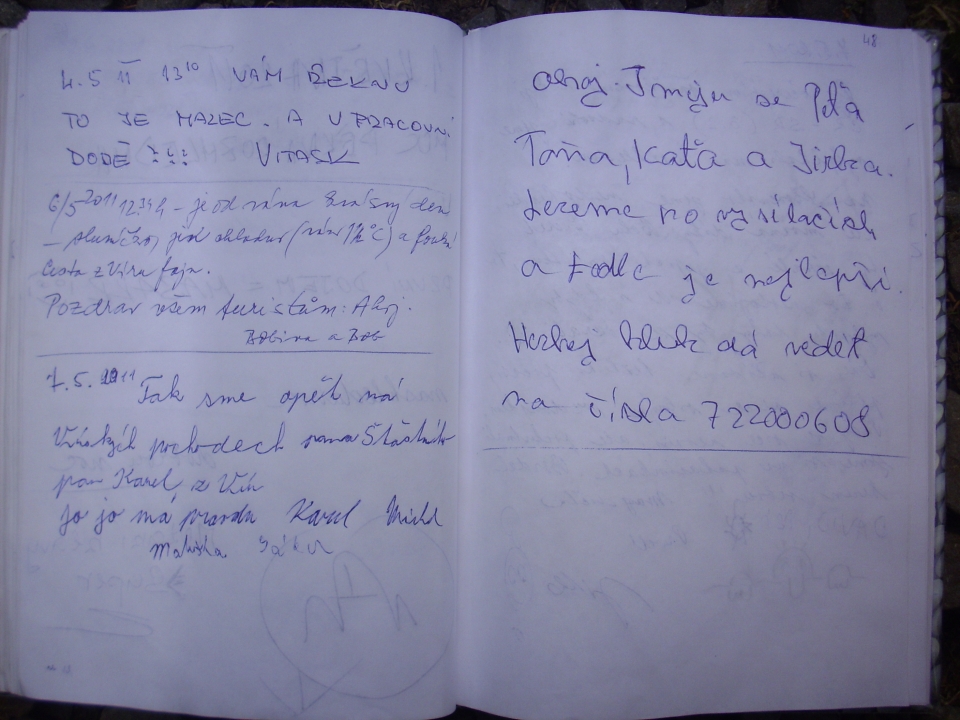 4.5 11 13¹⁰ VÁM ŘEKNU
TO JE MAZEC. A V PRACOVNÍ
DOBĚ !!! VITASK
6/5 2011 12.34 h – je od rána krásný den
– sluníčko, jen chladno (ráno °C) a fouká
Cesta z Víru fajn.
Pozdrav všem turistům: Ahoj.
Bobina a Bob
7.5.2011 Tak sme opět na
pochodech
pan Karel z Vír
Jo jo má pravdu Karel
48
Ahoj. Jmeju se Peťa
Táňa, Kaťa a Jirka.
Lezeme po vysílačích
a tadle je nejlepší.
Hezkej kluk dá vědět
na čísla 722000608